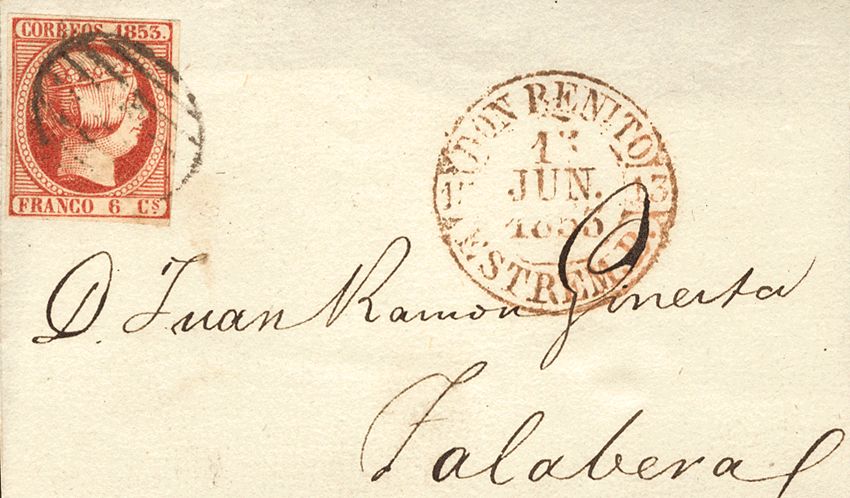 CORREOS 1853.
FRANCO 6 Cs.
DON BENITO
13 13
JUN.
1853
ESTREM.
D. Juan Ramon Ginesta
Talabera